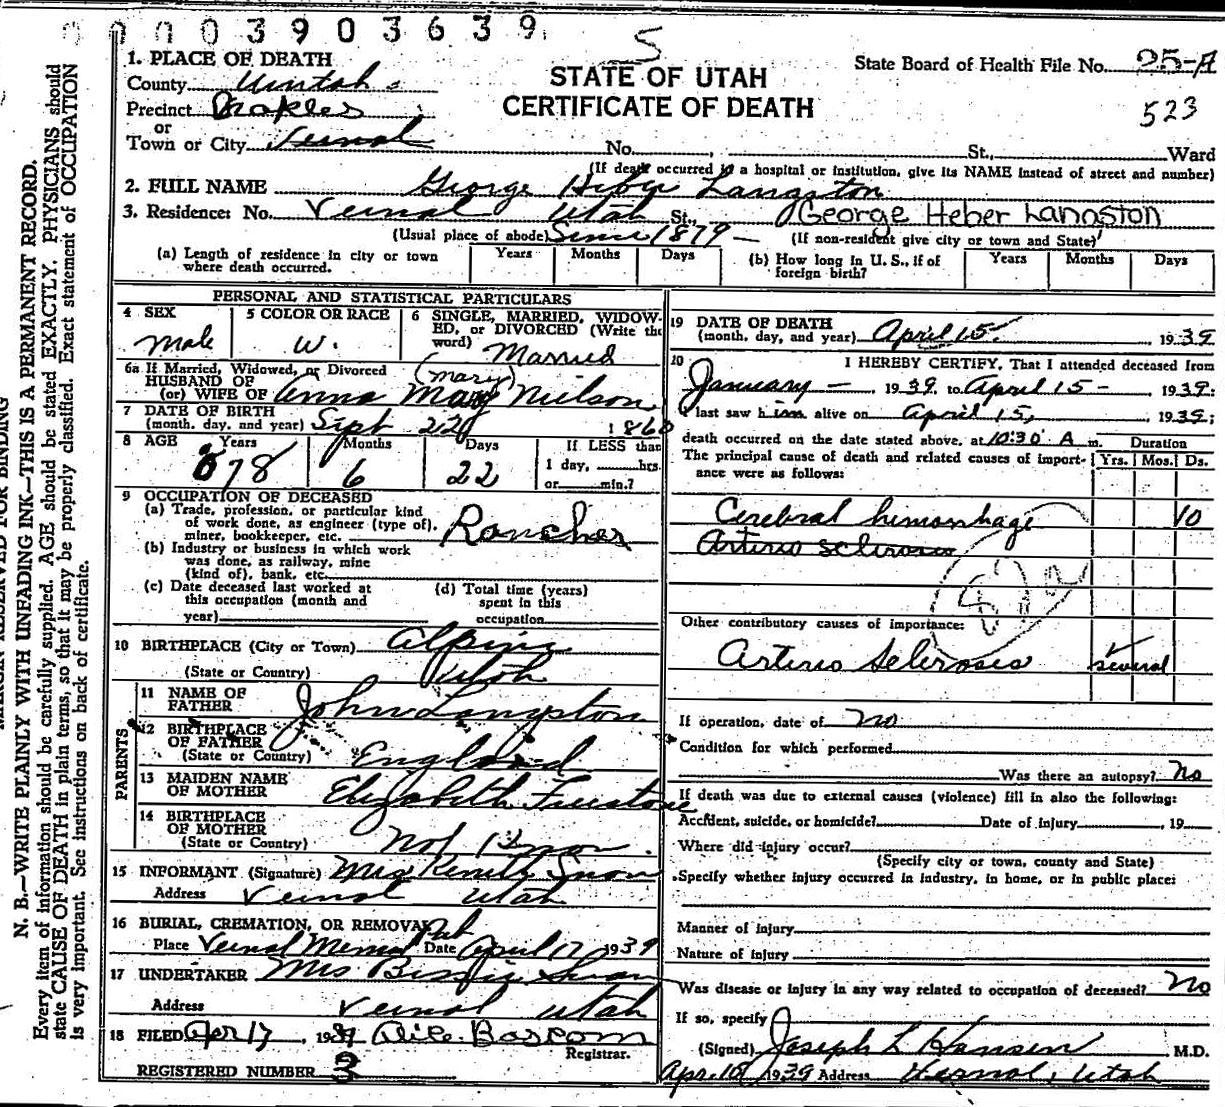 0 0 0 0 3 9 0 3 6 3 9
5
1. PLACE OF DEATH
County Uintah
Precinct Naples
or
Town or City Vernal No. , St., Ward
STATE OF UTAH
CERTIFICATE OF DEATH
State Board of Health File No. 25-A
523
(If death occurred in a hospital or institution, give its NAME instead of street and number)
2. FULL NAME George Heber Langston
3. Residence: No. Vernal Utah St., George Heber Langston
(Usual place of abode) Since 1879 — (If non-resident give city or town and State)
(a) Length of residence in city or town where death occurred. Years Months Days
(b) How long in U. S., if of foreign birth? Years Months Days
PERSONAL AND STATISTICAL PARTICULARS
4 SEX Male
5 COLOR OR RACE W.
6 SINGLE, MARRIED, WIDOWED, or DIVORCED (Write the word) Married
6a If Married, Widowed, or Divorced
HUSBAND OF (Mary)
(or) WIFE OF Anna May Nielson
7 DATE OF BIRTH
(month, day, and year) Sept 22 1860
8 AGE Years Months Days If LESS than
78 6 22 1 day, hrs.
or min.?
9 OCCUPATION OF DECEASED
(a) Trade, profession, or particular kind
of work done, as engineer (type of),
miner, bookkeeper, etc. Rancher
(b) Industry or business in which work
was done, as railway, mine
(kind of), bank, etc.
(c) Date deceased last worked at
this occupation (month and
year)
(d) Total time (years)
spent in this
occupation
10 BIRTHPLACE (City or Town) Alpine
(State or Country) Utah
PARENTS
11 NAME OF FATHER John Langston
12 BIRTHPLACE OF FATHER
(State or Country) England
13 MAIDEN NAME OF MOTHER Elizabeth
14 BIRTHPLACE OF MOTHER
(State or Country) Not Known.
15 INFORMANT (Signature) Mrs Snow
Address Vernal Utah
16 BURIAL, CREMATION, OR REMOVAL
Place Vernal Date April 17 1939
17 UNDERTAKER Mrs Swain
Address Vernal Utah
18 FILED Apr 17, 1939 Bascom
Registrar.
REGISTERED NUMBER 3
19 DATE OF DEATH
(month, day, and year) April 15 , 1939
20 I HEREBY CERTIFY, That I attended deceased from
January — , 1939, to April 15 — 1939;
I last saw him alive on April 15, , 1939;
death occurred on the date stated above, at 10:30 A m. Duration
The principal cause of death and related causes of importance were as follows: Yrs. Mos. Ds.
Cerebral hemorrhage 10
Arterio sclerosis
Other contributory causes of importance:
Arterio Sclerosis several
If operation, date of no
Condition for which performed
Was there an autopsy? no
If death was due to external causes (violence) fill in also the following:
Accident, suicide, or homicide? Date of injury , 19
Where did injury occur?
(Specify city or town, county and State)
Specify whether injury occurred in industry, in home, or in public place:
Manner of injury
Nature of injury
Was disease or injury in any way related to occupation of deceased? no
If so, specify
(Signed) Joseph L Hansen M.D.
1939 Address Vernal, Utah
MARGIN RESERVED FOR BINDING
N. B.—WRITE PLAINLY WITH UNFADING INK—THIS IS A PERMANENT RECORD.
Every item of information should be carefully supplied. AGE should be stated EXACTLY. PHYSICIANS should
state CAUSE OF DEATH in plain terms, so that it may be properly classified. Exact statement of OCCUPATION
is very important. See instructions on back of certificate.